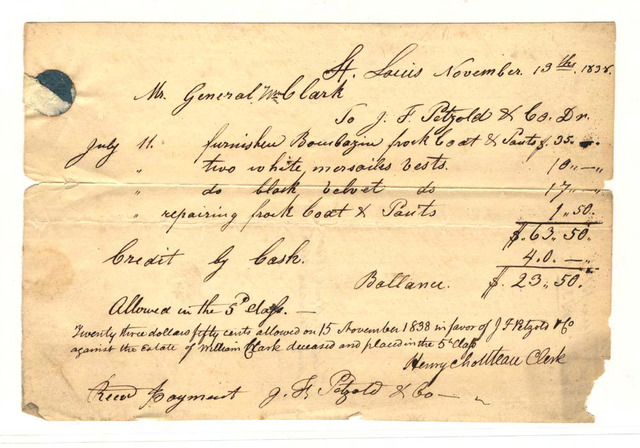 St. Louis November. 13th. 1838.
Mr. General Wm Clark
To J. F. Petzold & Co. Dr.
July 11. furnishen Bombazin frock Coat & Pants $35.„-„
„ two white, mersailes Vests. 10„-„
„ do black Velvet do 17„-„
„ repairing frock Coat & Pants 1„50.
$.63„50.
Credit by Cash. 40.-„
Ballance. $.23„50.
Allowed in the 5th Class. —
Twenty three dollars fifty cents allowed on 15 November 1838 in favor of J F Petzold & Co
against the Estate of William Clark deceased and placed in the 5th Class
Henry Chouteau Clerk
Recd Payment J. F. Petzold & Co —„